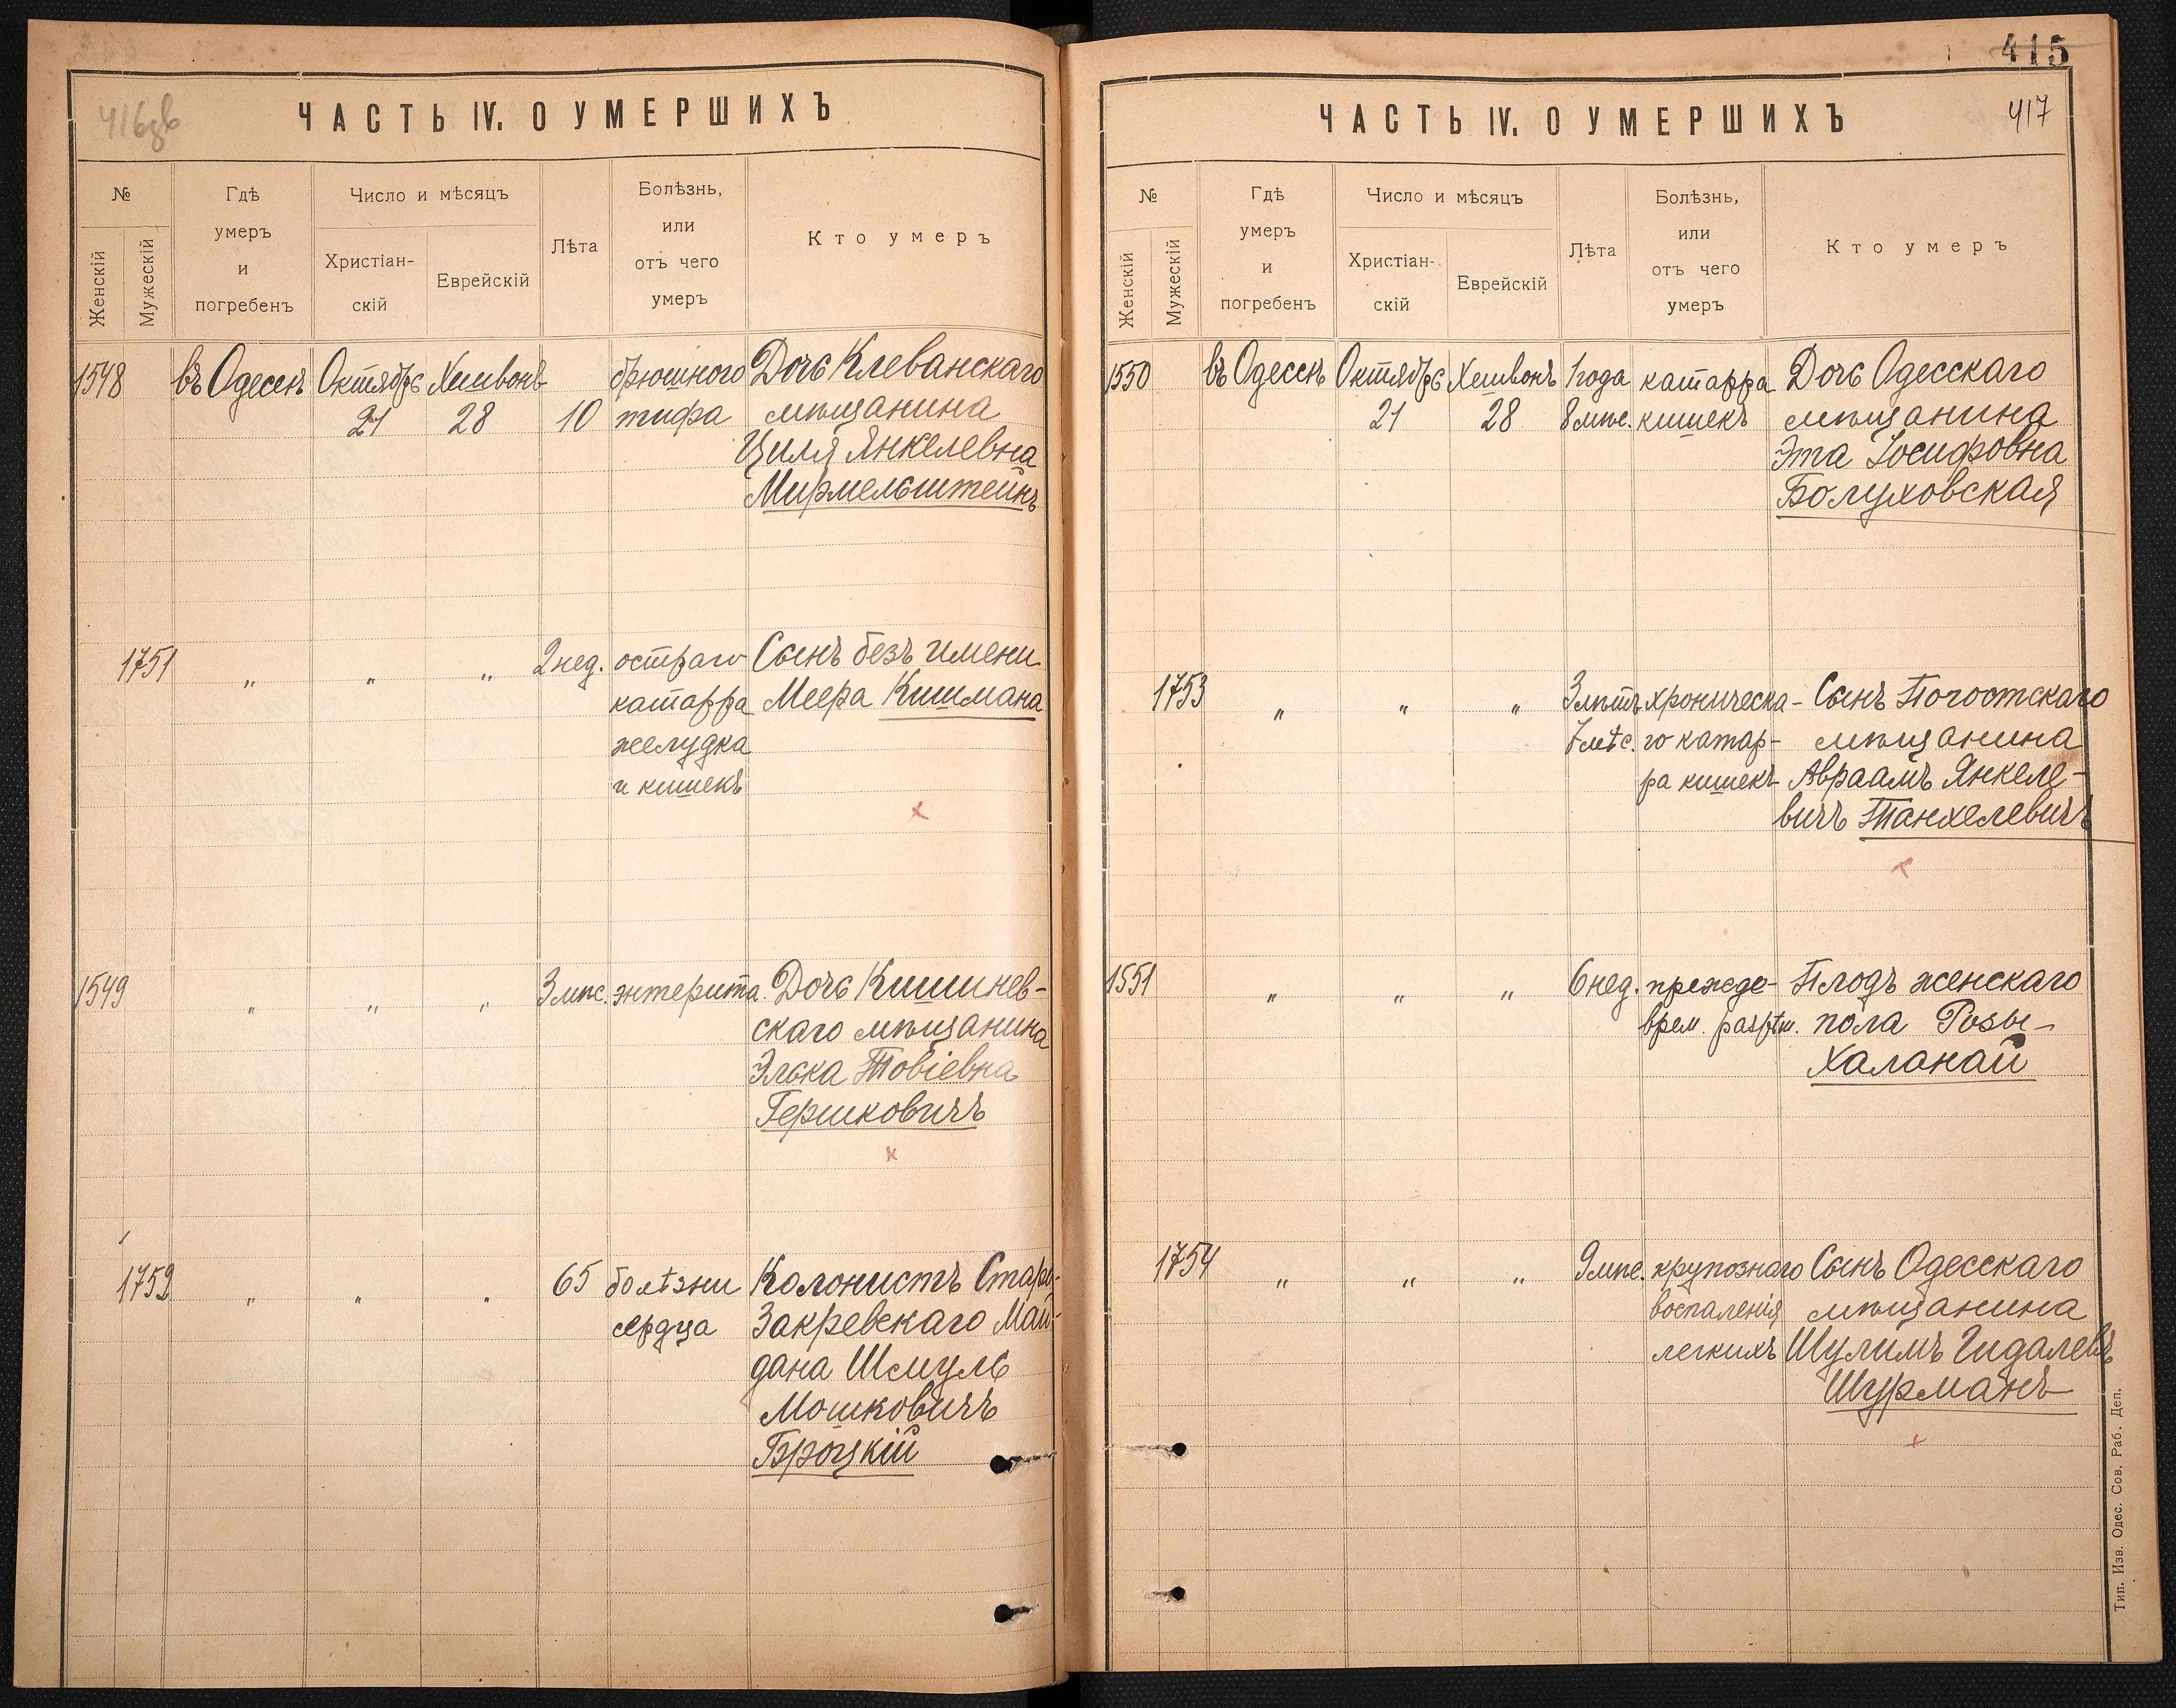 416зв
ЧАСТЬ IV. О УМЕРШИХЪ
№
Женскій
Мужескій
Гдѣ
умеръ
и
погребенъ
Число и мѣсяцъ
Христіан-
скій
Еврейскій
Лѣта
Болѣзнь,
или
отъ чего
умеръ
Кто умеръ
1548 въ Одессѣ Октябрь Хешвонъ брюшного Дочь Клеванскаго
21 28 10 тифа мѣщанина
Циля Янкелевна
Мирмельштейнъ
1751 " " " 2 нед. остраго Сынъ безъ имени
катарра Меера Кишмана
желудка
и кишекъ
1549 " " " 3 мѣс. энтерита Дочь Кишинев-
скаго мѣщанина
Элька Товіевна
Гершковичъ
1752 " " " 65 болѣзни Колонистъ Старо-
сердца Закревскаго Май-
дана Шмуль
Мошковичъ
Броцкій
415
417
ЧАСТЬ IV. О УМЕРШИХЪ
№
Женскій
Мужескій
Гдѣ
умеръ
и
погребенъ
Число и мѣсяцъ
Христіан-
скій
Еврейскій
Лѣта
Болѣзнь,
или
отъ чего
умеръ
Кто умеръ
1550 въ Одессѣ Октябрь Хешвонъ 1 года катарра Дочь Одесскаго
21 28 8 мѣс. кишекъ мѣщанина
Эта Іосифовна
Болуховская
1753 " " " 3 лѣтъ хроническа- Сынъ Погостскаго
7 мѣс. го катар- мѣщанина
ра кишекъ Авраамъ Янкеле-
вичъ Танхелевичъ
1551 " " " 6 нед. прежде- Плодъ женскаго
врем. пола Розы
Халанай
1754 " " " 9 мѣс. крупознаго Сынъ Одесскаго
воспаленія мѣщанина
легкихъ Шулимъ Гидалевъ
Шурманъ
Тип. Изв. Одес. Сов. Раб. Деп.